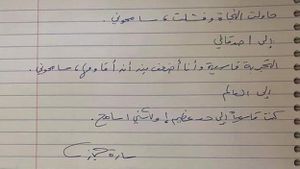 حاولت النجاة وفشلت، سامحوني.
إلى أصدقائي
التجربة قاسية وأنا أضعف من أن أقاومها، سامحوني.
إلى العالم
كنت قاسياً إلى حد عظيم! ولكني أسامح.
سارة حجازي